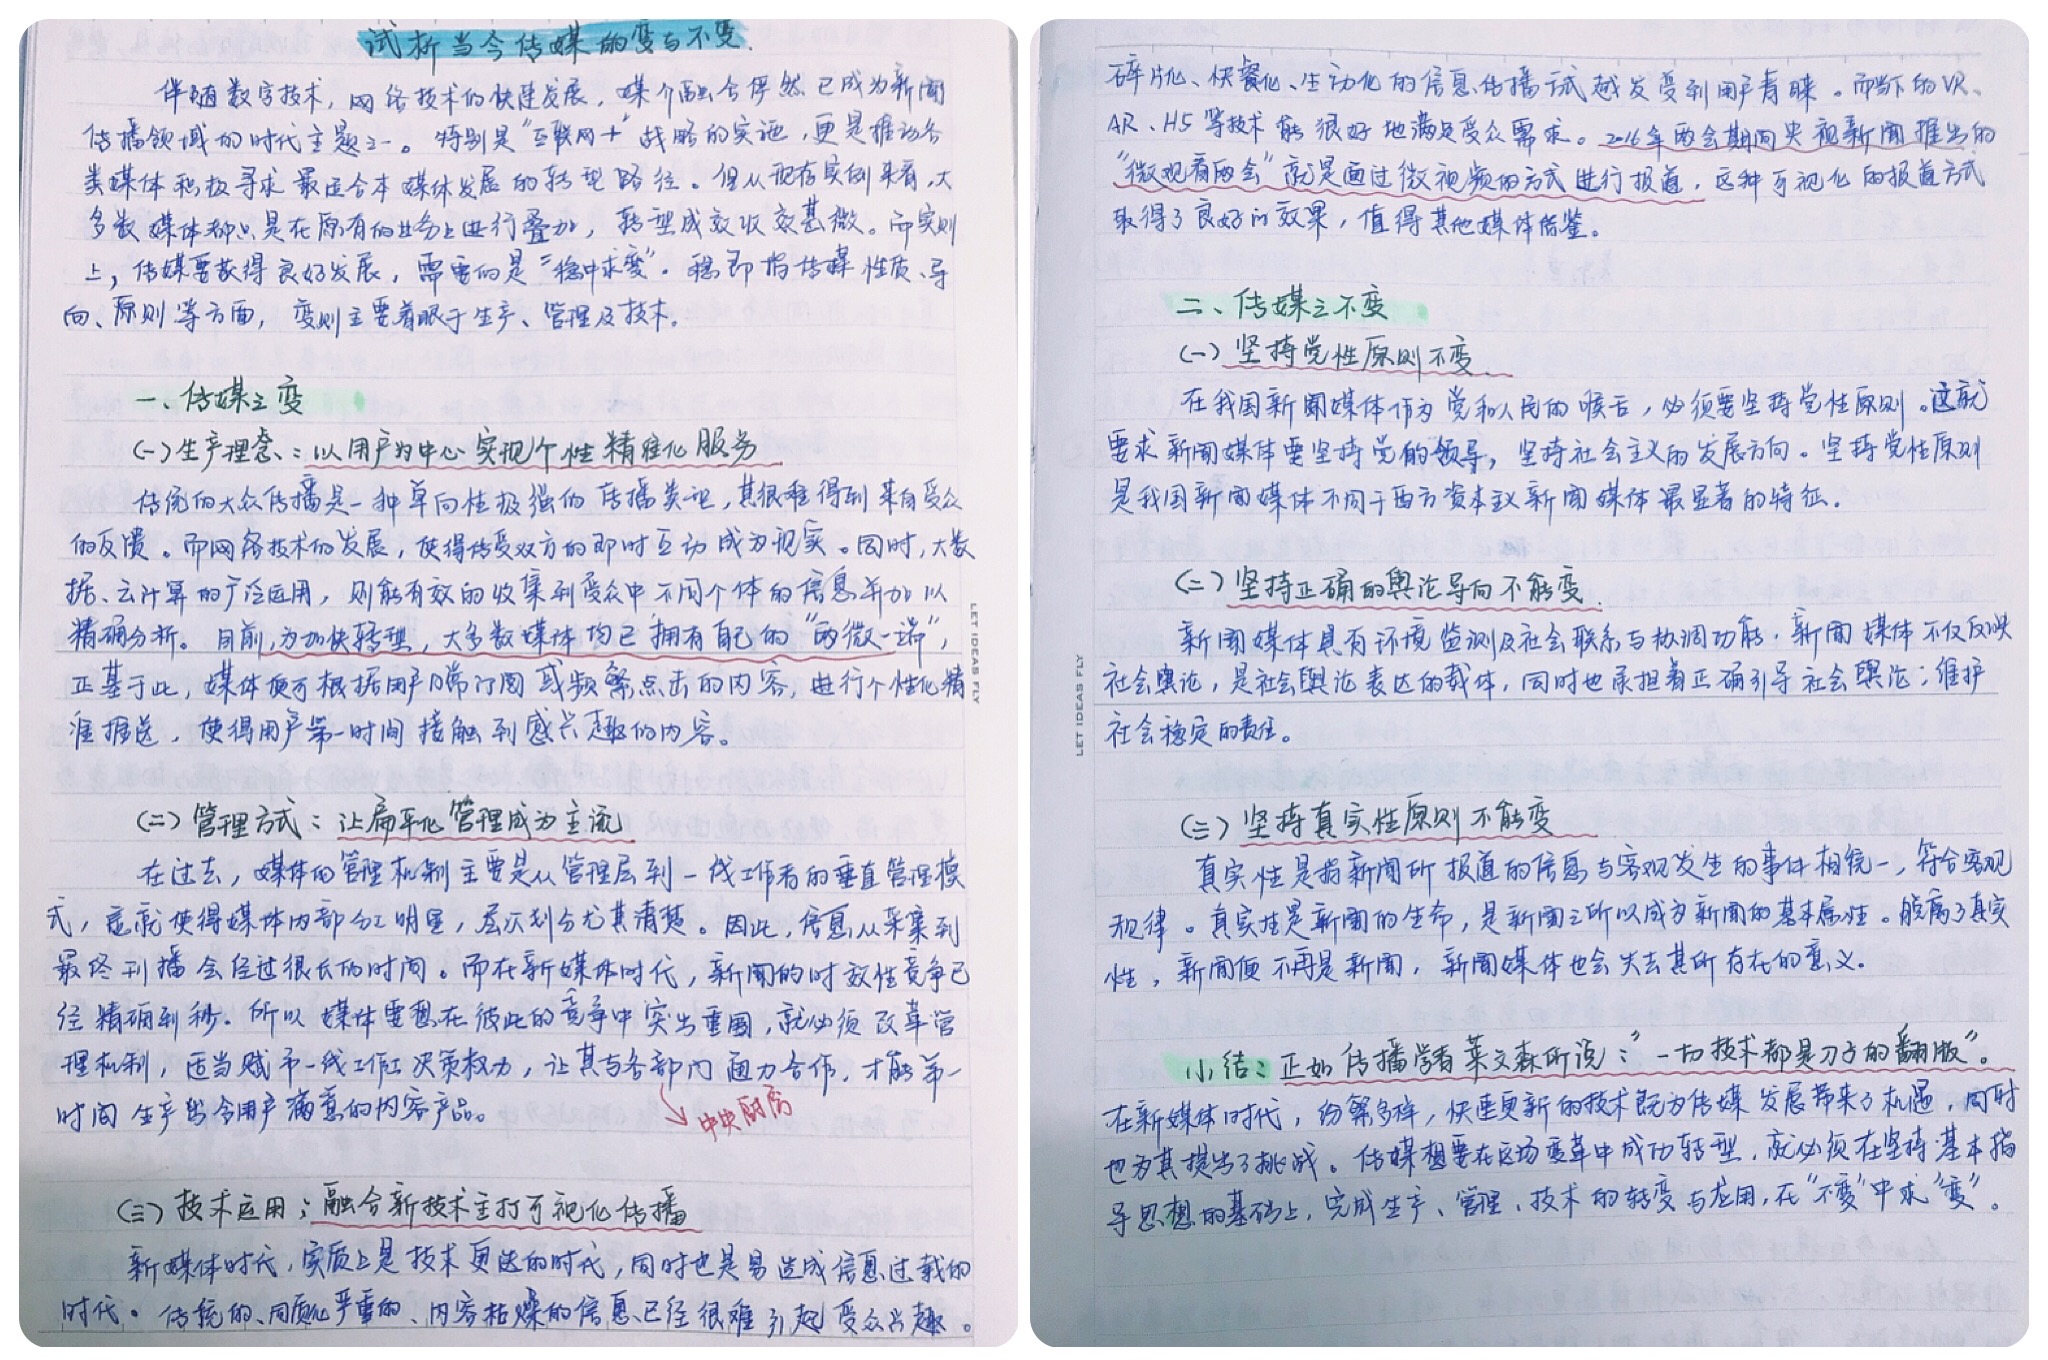 试析当今传媒的变与不变.
伴随数字技术，网络技术的快速发展，媒介融合俨然已成为新闻
传播领域的时代主题之一。特别是“互联网+”战略的实施，更是推动各
类媒体积极寻求最适合本媒体发展的转型路径。但从现存实例来看，大
多数媒体都只是在原有的业务上进行叠加，转型成效收效甚微。而实则
上，传媒要获得良好发展，需要的是“稳中求变”。稳即指传媒性质、导
向、原则等方面，变则主要着眼于生产、管理及技术。
一、传媒之变
(一)生产理念：以用户为中心实现个性精准化服务
传统的大众传播是一种单向性极强的传播类型，其很难得到来自受众
的反馈。而网络技术的发展，使得传受双方的即时互动成为现实。同时，大数
据、云计算的广泛运用，则能有效的收集到受众中不同个体的信息并加以
精确分析。目前，为加快转型，大多数媒体均已拥有自己的“两微一端”，
正基于此，媒体便可根据用户日常订阅或频繁点击的内容，进行个性化精
准推送，使得用户第一时间接触到感兴趣的内容。
(二)管理方式：让扁平化管理成为主流
在过去，媒体的管理机制主要是从管理层到一线工作者的垂直管理模
式，这就使得媒体内部分工明显，层次划分尤其清楚。因此，信息从采集到
最终刊播会经过很长的时间。而在新媒体时代，新闻的时效性竞争已
经精确到秒。所以媒体要想在彼此的竞争中突出重围，就必须改革管
理机制，适当赋予一线工作决策权力，让其与各部门通力合作，才能第一
时间生产出令用户满意的内容产品。
中央厨房
(三)技术应用：融合新技术主打可视化传播
新媒体时代，实质上是技术更迭的时代，同时也是易造成信息过载的
时代。传统的、同质化严重的、内容枯燥的信息已经很难引起受众兴趣。
LET IDEAS FLY
碎片化、快餐化、生动化的信息传播方式越发受到用户青睐。而当下的VR、
AR、H5等技术能很好地满足受众需求。2016年两会期间央视新闻推出的
“微观看两会”就是通过微视频的方式进行报道，这种可视化的报道方式
取得了良好的效果，值得其他媒体借鉴。
二、传媒之不变
(一)坚持党性原则不变
在我国新闻媒体作为党和人民的喉舌，必须要坚持党性原则。这就
要求新闻媒体要坚持党的领导，坚持社会主义的发展方向。坚持党性原则
是我国新闻媒体不同于西方资本主义新闻媒体最显著的特征。
(二)坚持正确的舆论导向不能变.
新闻媒体具有环境监测及社会联系与协调功能，新闻媒体不仅反映
社会舆论，是社会舆论表达的载体，同时也承担着正确引导社会舆论；维护
社会稳定的责任。
(三)坚持真实性原则不能变
真实性是指新闻所报道的信息与客观发生的事件相统一，符合客观
规律。真实性是新闻的生命，是新闻之所以成为新闻的基本属性。脱离了真实
性，新闻便不再是新闻，新闻媒体也会失去其所存在的意义。
小结：正如传播学者莱文森所说：“一切技术都是刀子的翻版”。
在新媒体时代，纷繁多样，快速更新的技术既为传媒发展带来了机遇，同时
也为其提出了挑战。传媒想要在这场变革中成功转型，就必须在坚持基本指
导思想的基础上，完成生产、管理、技术的转变与应用，在“不变”中求“变”。
LET IDEAS FLY